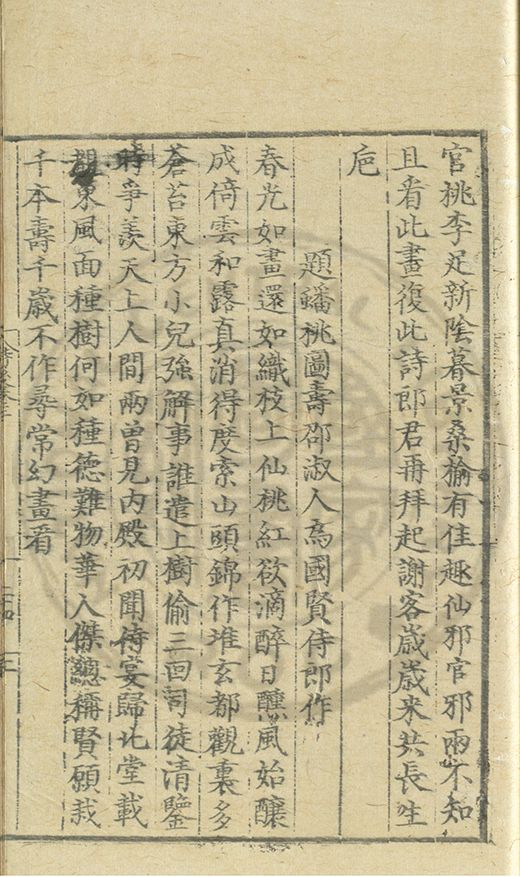 官桃李足新陰暮景桑榆有佳趣仙邪官邪兩不知
且看此畫復此詩郎君再拜起謝客歳歳来共長生
巵
題蟠桃圖壽邵淑人為國賢侍郎作
春光如畫還如織枝上仙桃紅欲滴醉日醺風始釀
成倚雲和露真消得度索山頭錦作堆玄都觀裏多
蒼苔東方小兒強解事誰遣上樹偷三回司徒清鑒
時爭羨天上人間兩曽見内殿初聞侍宴歸北堂載
東風面種樹何如種德難物華人傑總稱賢願栽
千本壽千歳不作尋常幻畫看